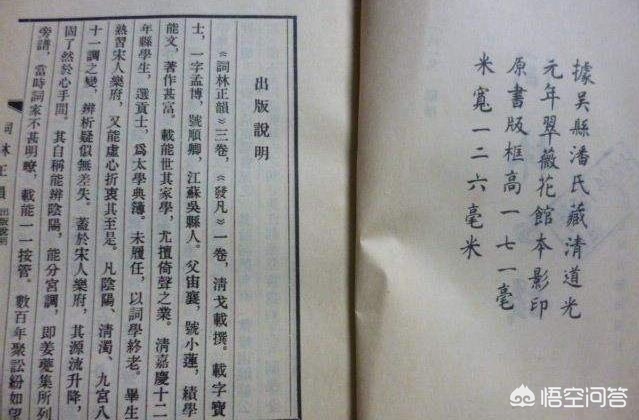 據吳縣潘氏藏清道光
元年翠薇花館本影印
原書版框高一七一毫
米寬一二六毫米
出版說明
《詞林正韻》三卷,《發凡》一卷,清戈載撰。載字寶
士,一字孟博,號順卿,江蘇吳縣人。父宙襄,號小蓮,績學
能文,著作甚富。載能世其家學,尤擅倚聲之業。清嘉慶十二
年縣學生,選貢士,爲太學典簿。未履任,以詞學終老。畢生
熟習宋人樂府,又能虛心折衷其至是。凡陰陽、清濁、九宮八
十一調之變,辨析疑似無差失。蓋於宋人樂府,其源流升降,
固了然於心手間。其自稱能辨陰陽,能分宮調,即姜夔集所列
旁譜,當時詞家不甚明瞭,載能一一按管。數百年聚訟紛如望
詞林正韻 出版說明
悟空问答